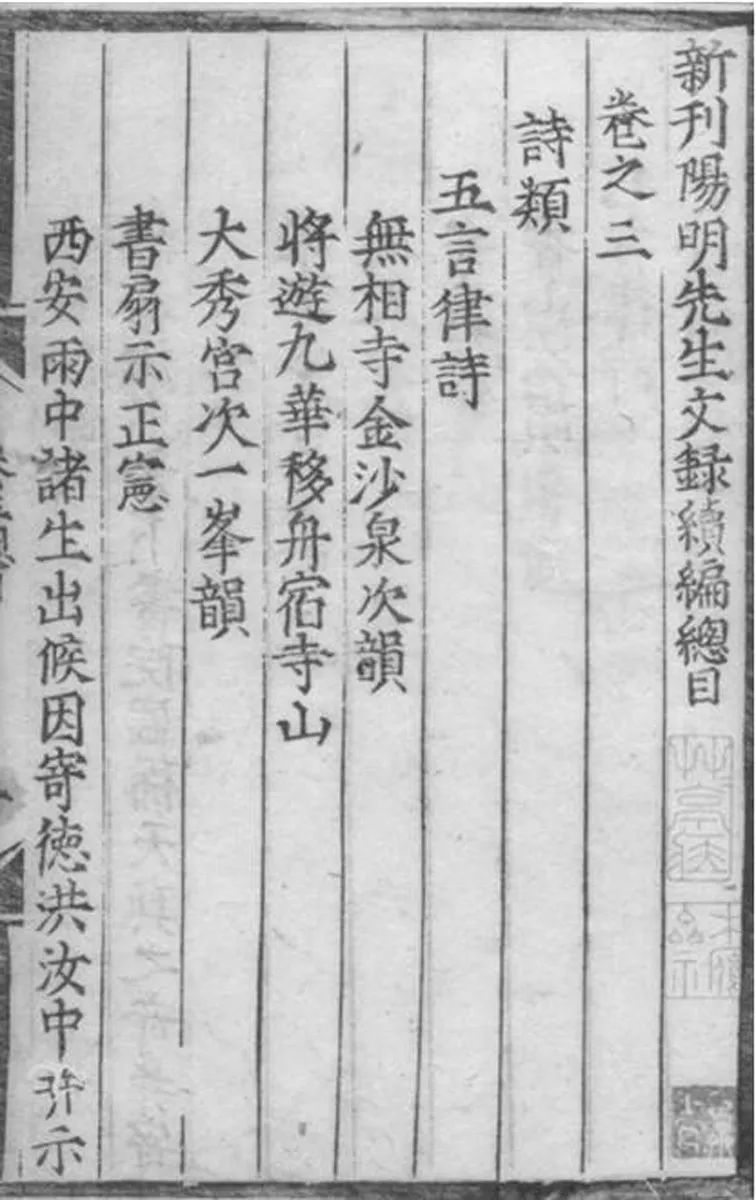 新刊陽明先生文録續編總目
卷之三
詩類
五言律詩
無相寺金沙泉次韻
将遊九華移舟宿寺山
大秀宮次一峯韻
書扇示正憲
西安雨中諸生出候因寄徳洪汝中并示